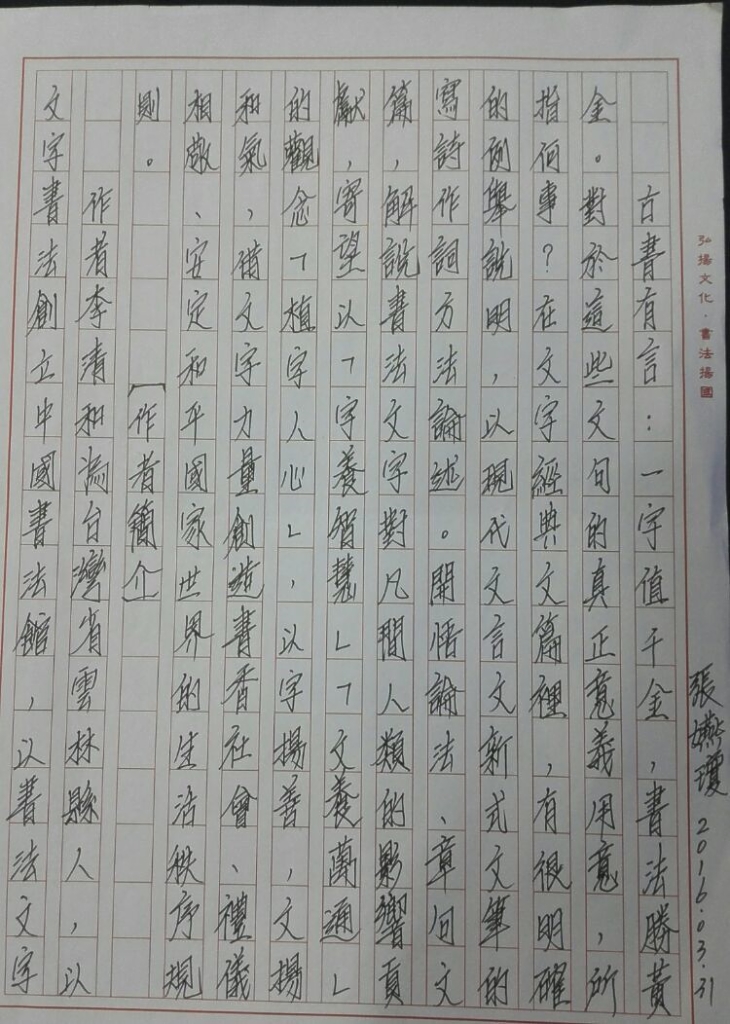 弘揚文化·書法揚國
張嬿瓊 2016.03.31
古書有言：一字值千金，書法勝黃
金。對於這些文句的真正意義用意，所
指何事？在文字經典文篇裡，有很明確
的例舉說明，以現代文言文新式文筆的
寫詩作詞方法論述。開悟論法、章句文
篇，解說書法文字對凡間人類的影響貢
獻，寄望以「字養智慧」「文養萬通」
的觀念「植字人心」，以字揚善，文揚
和氣，借文字力量創造書香社會、禮儀
相敬、安定和平國家世界的生活秩序規
則。
【作者簡介
作者李清和為台灣省雲林縣人，以
文字書法創立中國書法館，以書法文字